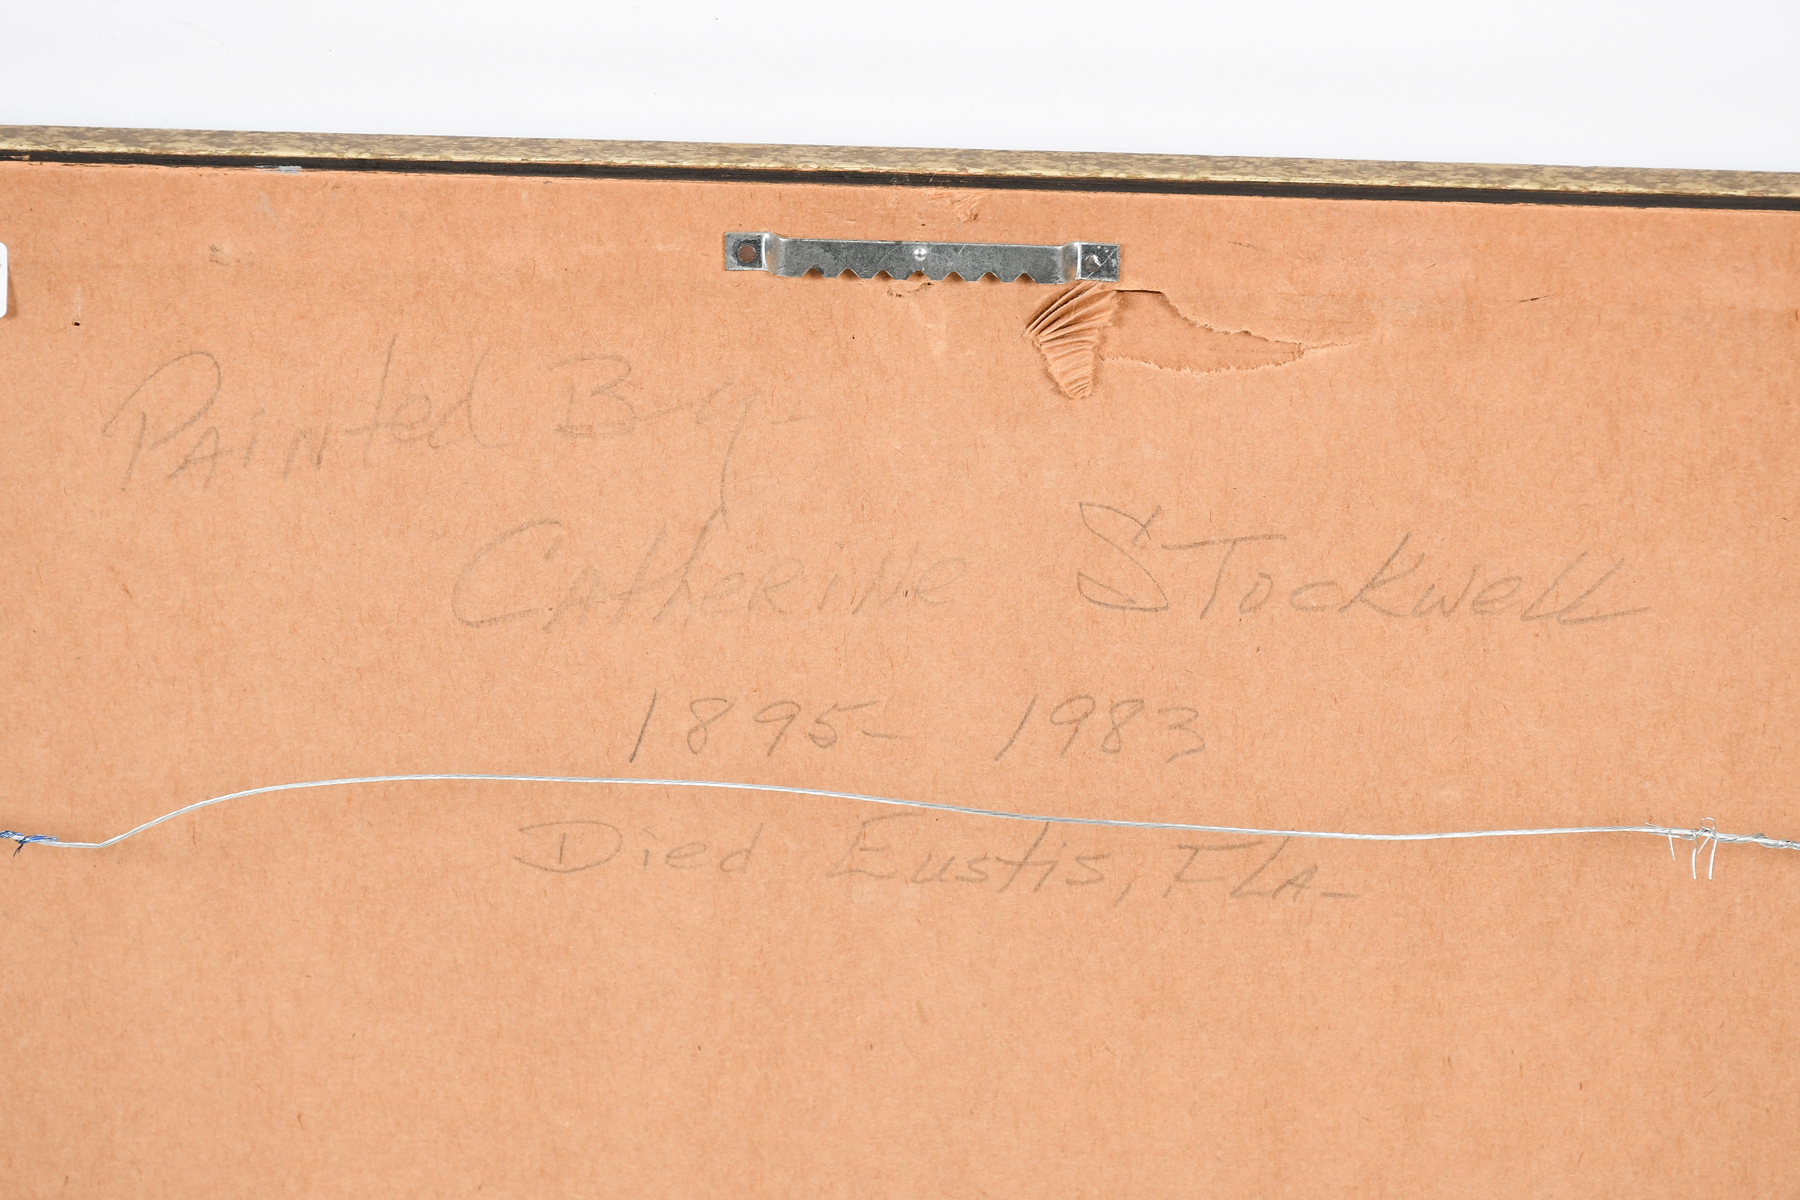 Painted By-
Catherine Stockwell
1895- 1983
Died Eustis, Fla-